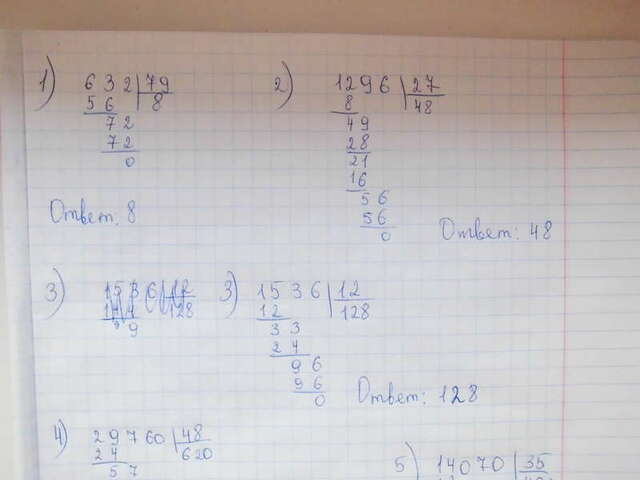 1) 632 | 79
56 | 8
72
72
0
Ответ: 8
2) 1296 | 27
8 | 48
49
28
21
16
56
56
0
Ответ: 48
3)
3) 1536 | 12
12 | 128
33
24
96
96
0
Ответ: 128
4) 29760 | 48
24 | 620
57
5) 14070 | 35